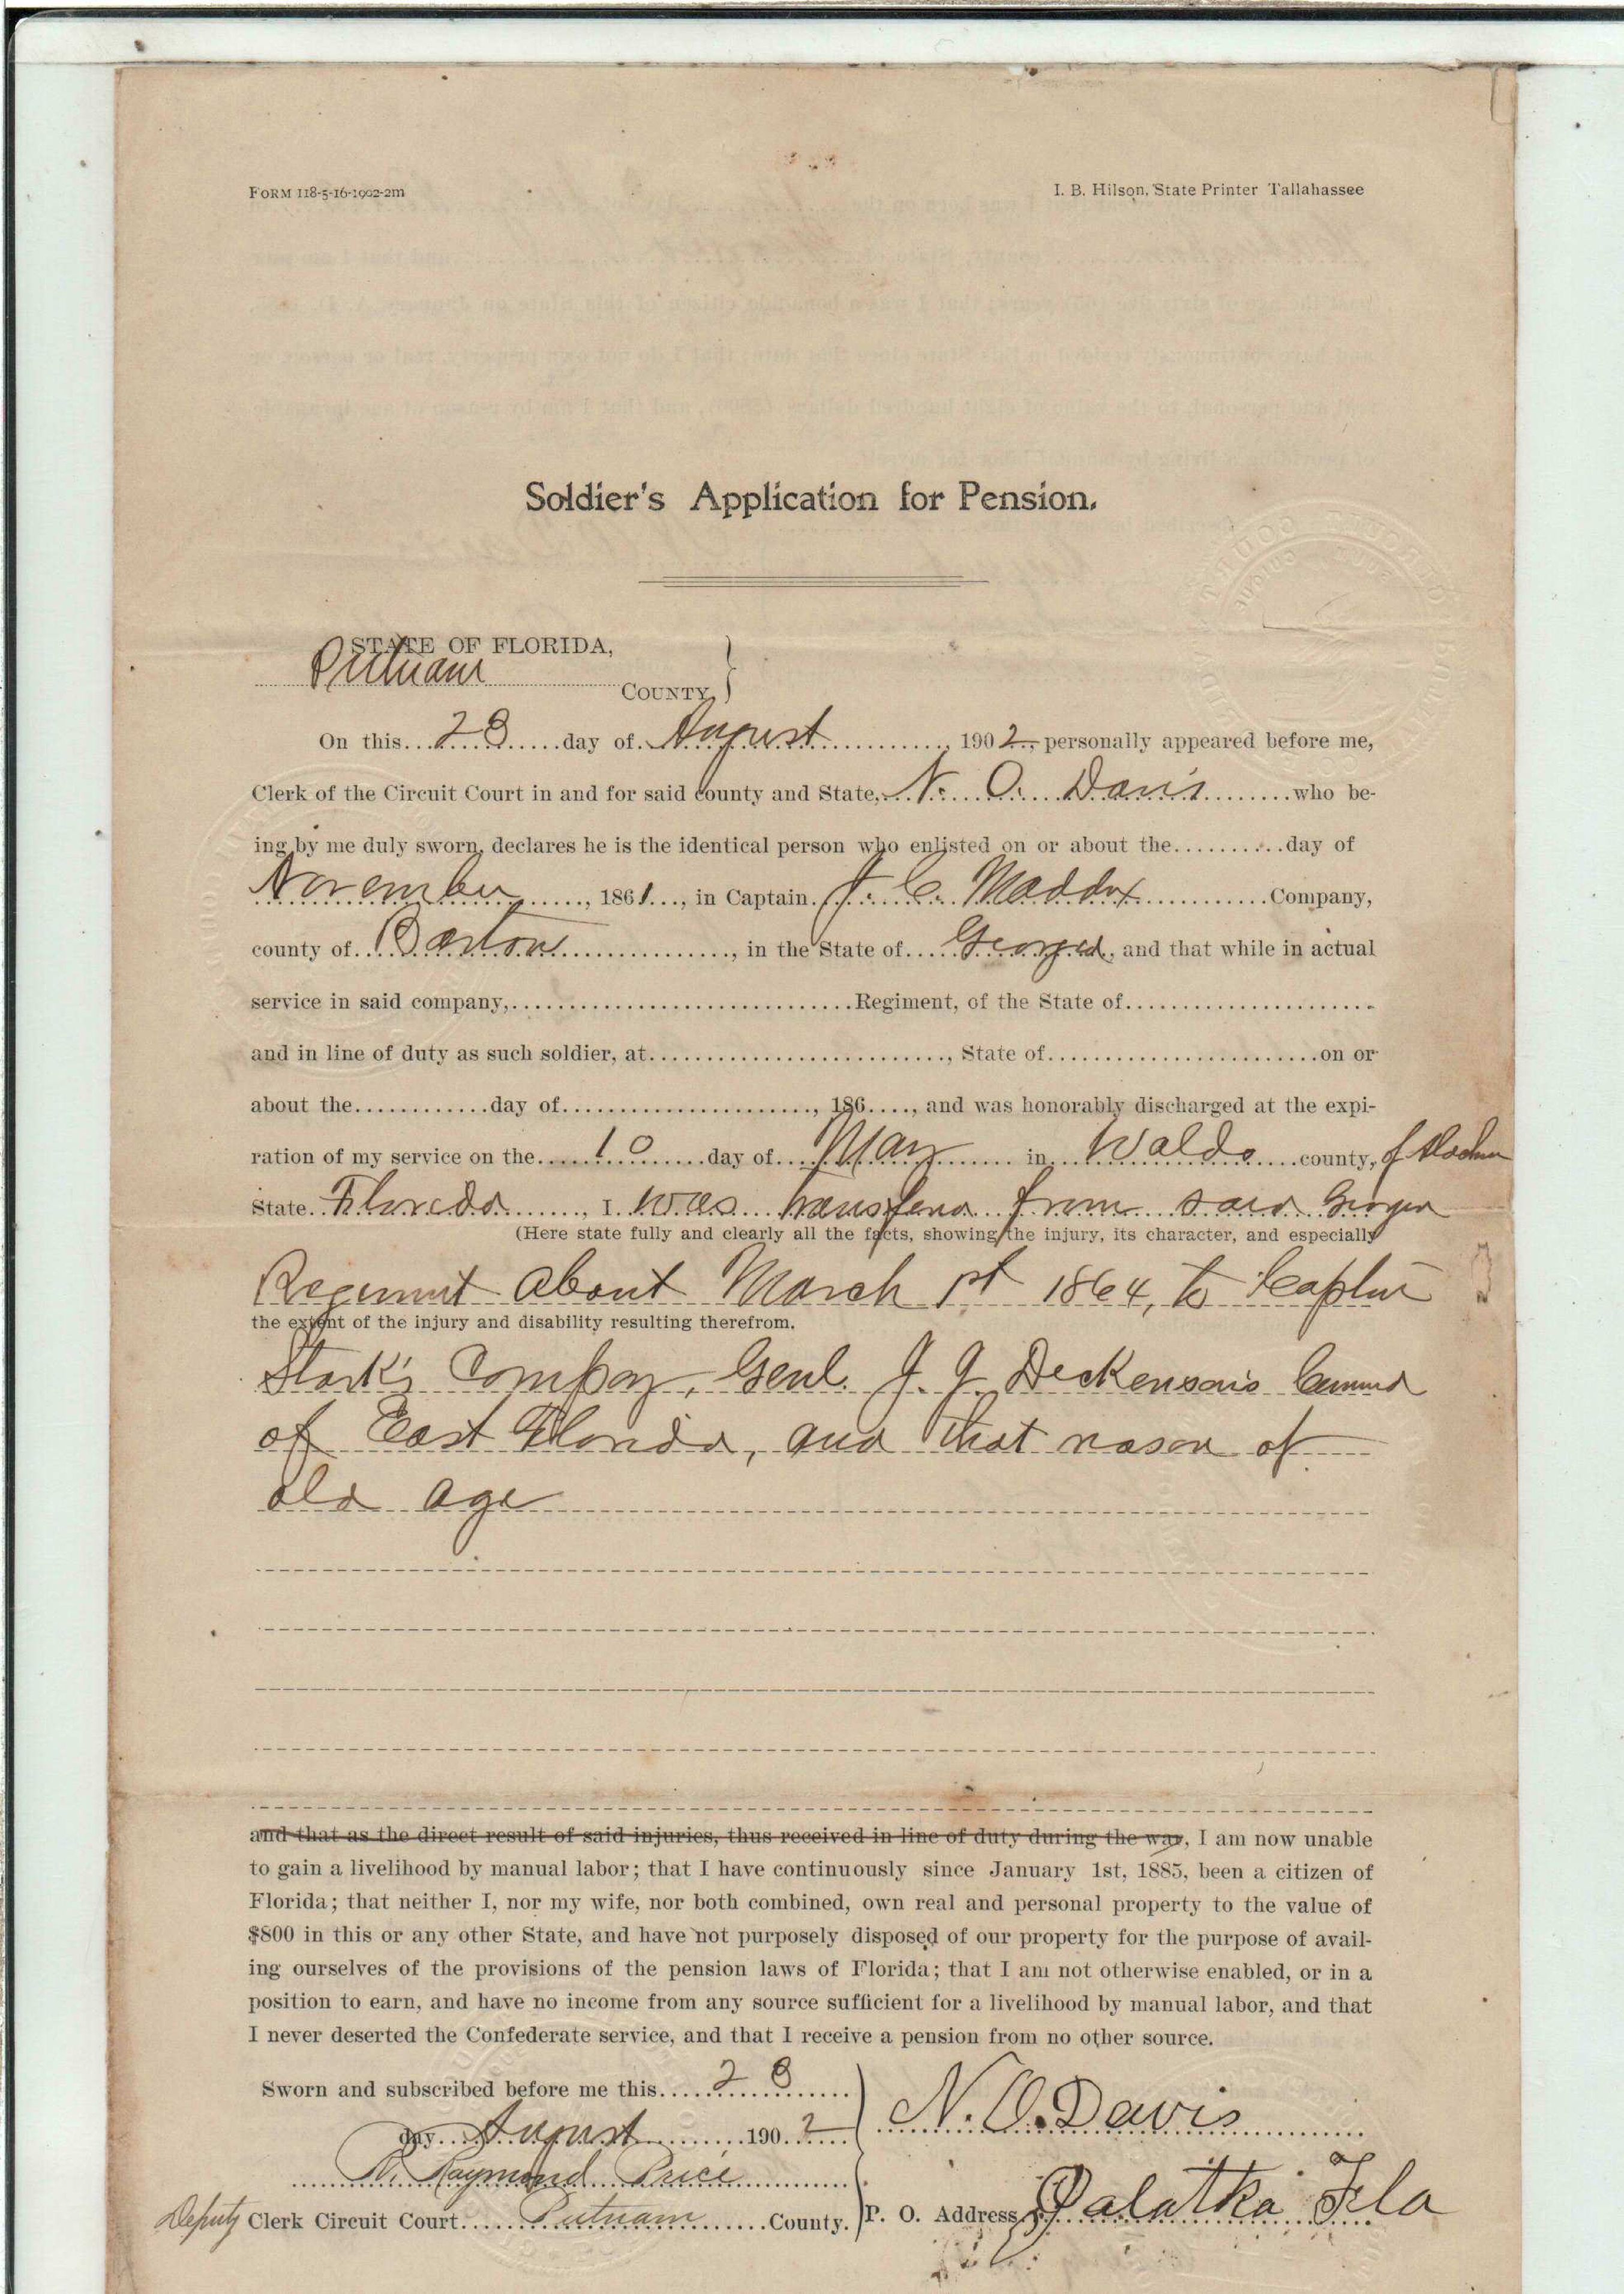 FORM 118-5-16-1902-2m
I. B. Hilson, State Printer Tallahassee
Soldier's Application for Pension.
STATE OF FLORIDA,
Putnam COUNTY,
On this 28 day of August, 1902, personally appeared before me,
Clerk of the Circuit Court in and for said county and State, N. O. Davis who be-
ing by me duly sworn, declares he is the identical person who enlisted on or about the day of
November, 1861, in Captain J. C. Maddox Company,
county of Bartow, in the State of Georgia, and that while in actual
service in said company, Regiment, of the State of
and in line of duty as such soldier, at, State of on or
about the day of, 186, and was honorably discharged at the expi-
ration of my service on the 10 day of May in Waldo county, of Alachua
State Florida, I was transferd from said Georgia
(Here state fully and clearly all the facts, showing the injury, its character, and especially
Regiment about March 1st 1864, to Captin
the extent of the injury and disability resulting therefrom.
Stark's Company, Genl. J. J. Dickenson's Command
of East Florida, and that reason of
old age
and that as the direct result of said injuries, thus received in line of duty during the war, I am now unable
to gain a livelihood by manual labor; that I have continuously since January 1st, 1885, been a citizen of
Florida; that neither I, nor my wife, nor both combined, own real and personal property to the value of
$800 in this or any other State, and have not purposely disposed of our property for the purpose of avail-
ing ourselves of the provisions of the pension laws of Florida; that I am not otherwise enabled, or in a
position to earn, and have no income from any source sufficient for a livelihood by manual labor, and that
I never deserted the Confederate service, and that I receive a pension from no other source.
Sworn and subscribed before me this 28
day August 1902
N. O. Davis
Raymond Price
Deputy Clerk Circuit Court Putnam County.
P. O. Address Palatka Fla